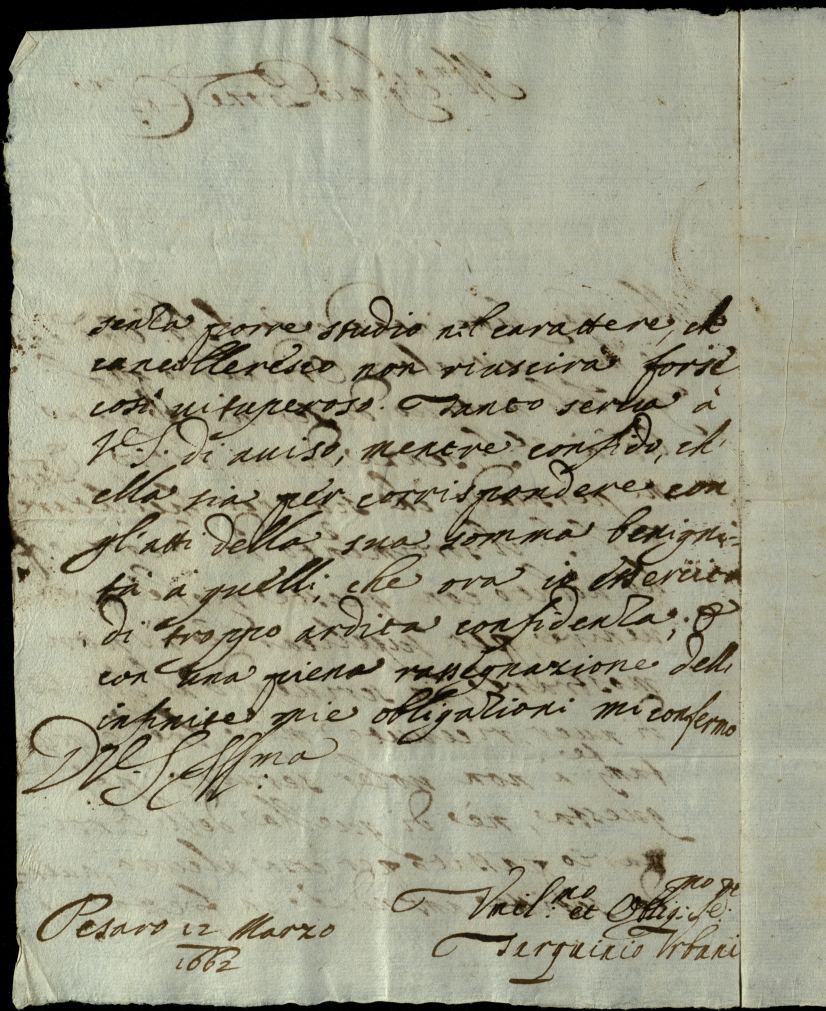 senza porre studio nel carattere, ch
cancelleresco non riuscirà forse
così uituperoso. Tanto serua à
V.S. di auiso, mentre confido, ch
ella sia per corrispondere con
gl'atti della sua somma benigni-
tà à quelli, che ora io essercito
di troppo ardita confidenza; &
con una piena rassegnazione delle
infinite mie obligazioni mi confermo
D V.S. Ill.ma
Pesaro 12 Marzo
1662
Vmil.mo et Oblig.mo Se.re
Tarquinio Vrbani